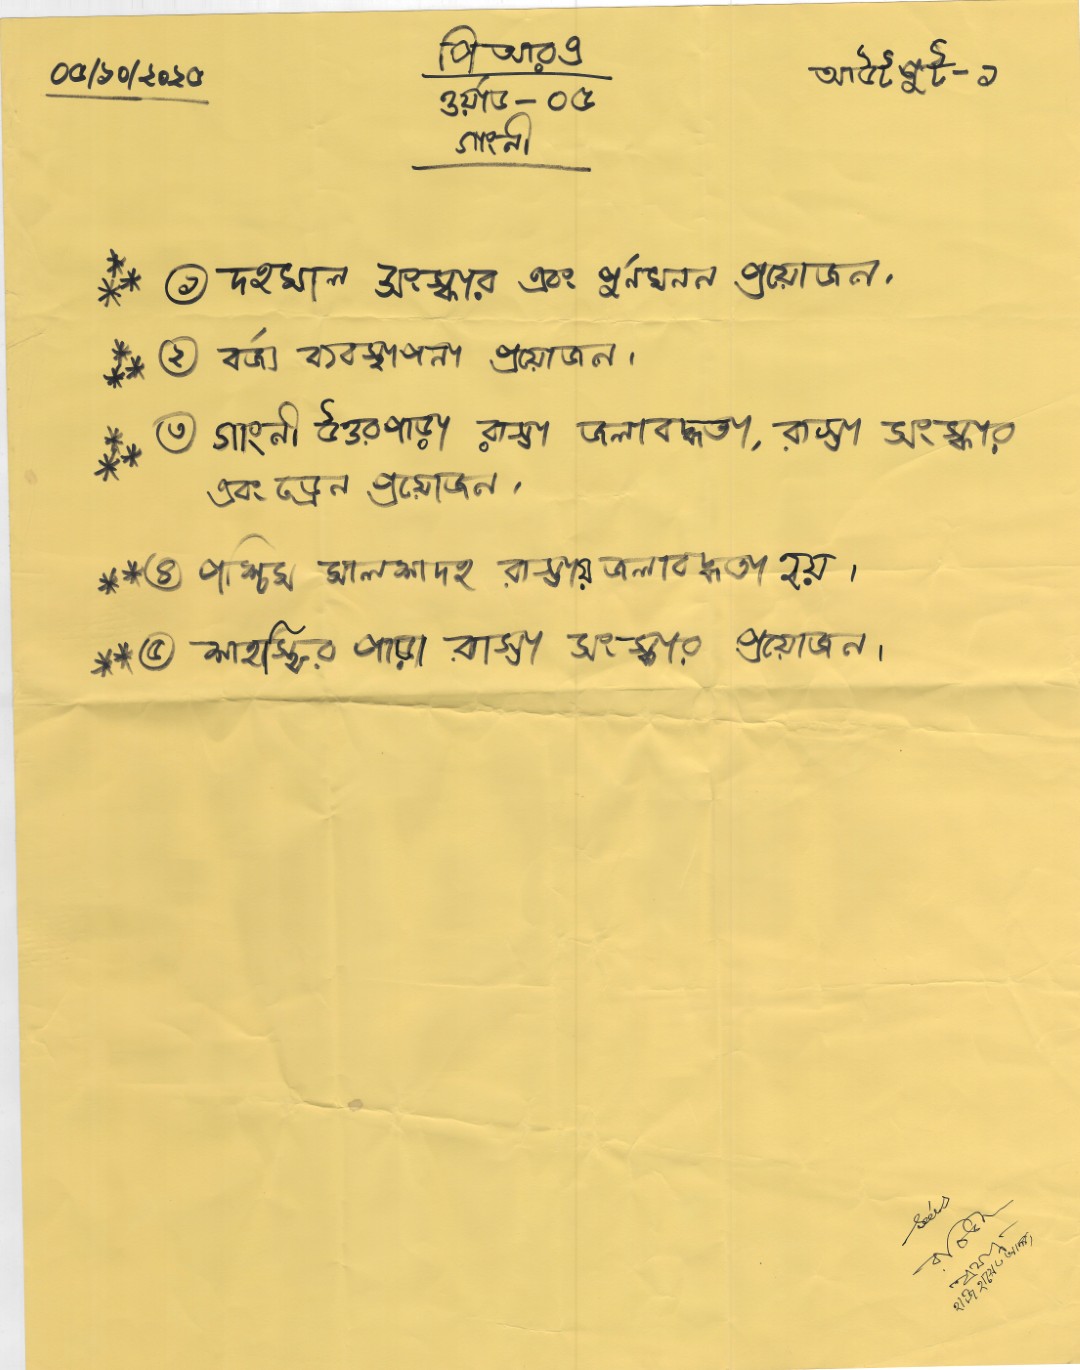 ০৫/১০/২০২৫
পি আর এ
ওর্য়াড - ০৫
গাংনী
আউটপুট - ১
*** ১ দহখাল সংস্কার এবং পুর্নখনন প্রয়োজন।
*** ২ বর্জ্য ব্যবস্থাপনা প্রয়োজন।
*** ৩ গাংনী উত্তরপাড়া রাস্তা জলাবদ্ধতা, রাস্তা সংস্কার
এবং ড্রেন প্রয়োজন।
** ৪ পশ্চিম মালশাদহ রাস্তায় জলাবদ্ধতা হয়।
** ৫ পাড়া রাস্তা সংস্কার প্রয়োজন।